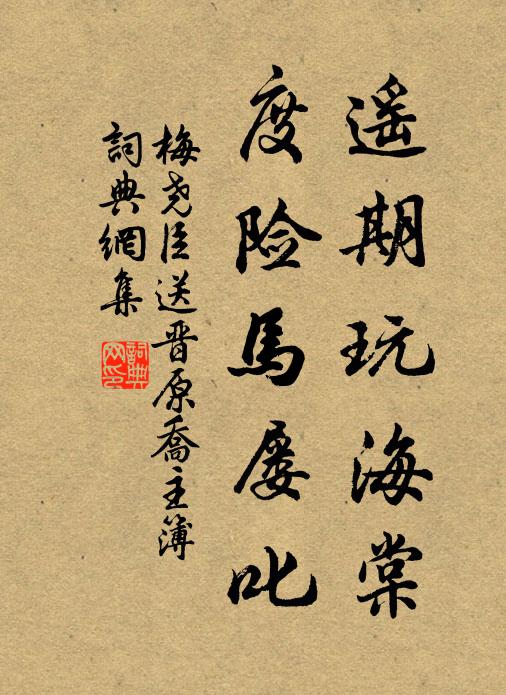 遥期玩海棠
度险馬屡叱
梅尧臣送晋原喬主簿
詞典網集
詞典网印